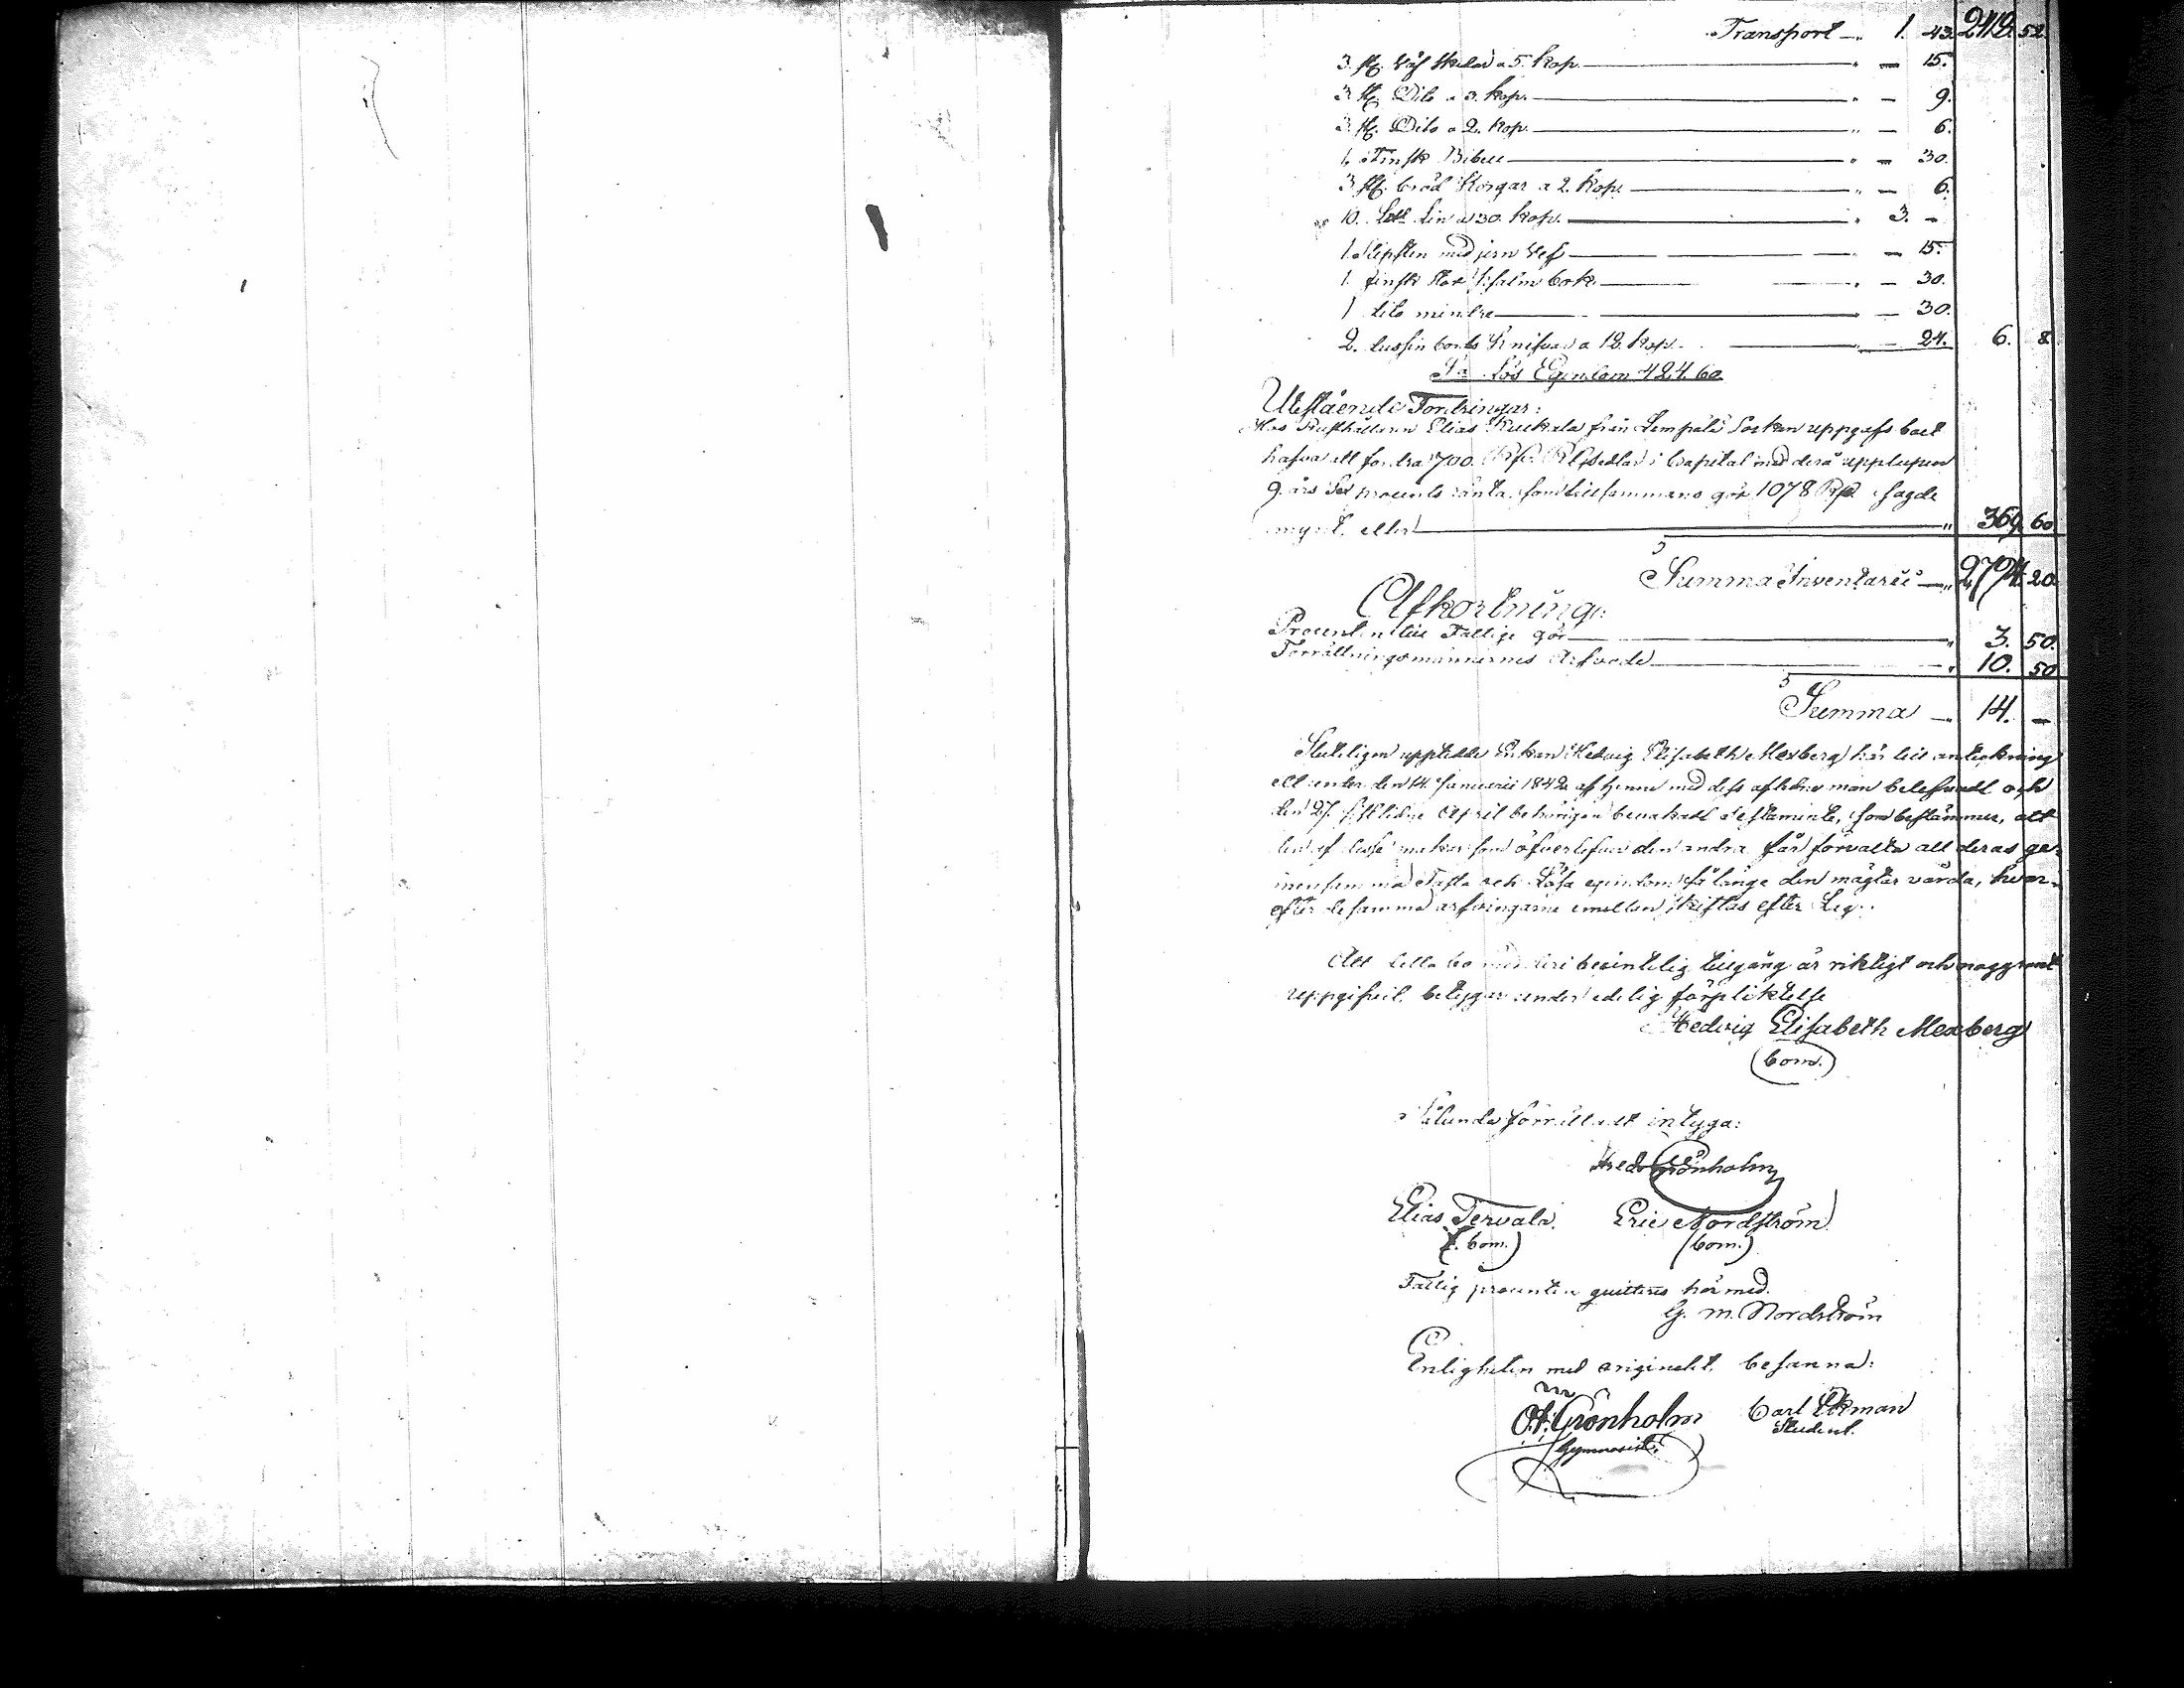 Transport — 1. 43. 2412. 52.
3. st. skedar a 5. kop. — 15.
3. st. Dito a 3. kop. — 9.
3. st. Dito a 2. kop. — 6.
1. Finsk Bibel — 30.
3. st. bröd Korgar a 2. kop. — 6.
10. Lin a 30. kop. 3. —
1. slipsten med jern vef — 15.
1. finsk stor Psalm bok — 30.
1 dito mindre — 30.
2. dussin bords Knifvar a 12. kop. — 24. 6. 8
Lös Egendom 424. 60
Utestående Fordringar:
Hos Rusthållaren Elias från Lempälä Socken uppgafs boet
hafva att fordra 700. i Capital med derå upplupen
9. års Sex procents ränta, som tillsammans gör 1078 sagde
mynt, eller 369. 60
Summa Inventarii — 2794. 20.
Afkortning:
Procenten till Fattige gör 3. 50.
Förrättningsmännernes Arfvode 10. 50
Summa — 14. —
Sluteligen upptedde Enkan Hedvig Elisabeth Mexberg här till anteckning
ett under den 14. Januarii 1842 af henne med dess aflidne man och
den 27. sistlidne April behörigen bevakadt testamente, som bestämmer, att
den af desse makar som öfverlefver den andra får förvalta all deras ge-
mensamma Fasta och Lösa egendom så länge den mägtar vårda, hvar-
efter desamma arfvingarne emellan skiftas efter Lag.
Att detta bo befintelig tillgång är riktigt och noggrant
uppgifvit, betygar under edelig förpliktelse
Hedvig Elisabeth Mexberg
(bom.)
Sålunda förrättadt intyga:
Fredr Grönholm
Elias Tervala. Eric Nordström
(bom.) (bom.)
Fattig procenten quitteras härmed.
G. M. Nordström
Enligheten med originalet besanna:
O. F. Grönholm Carl Ekman
Gymnasist. Student.